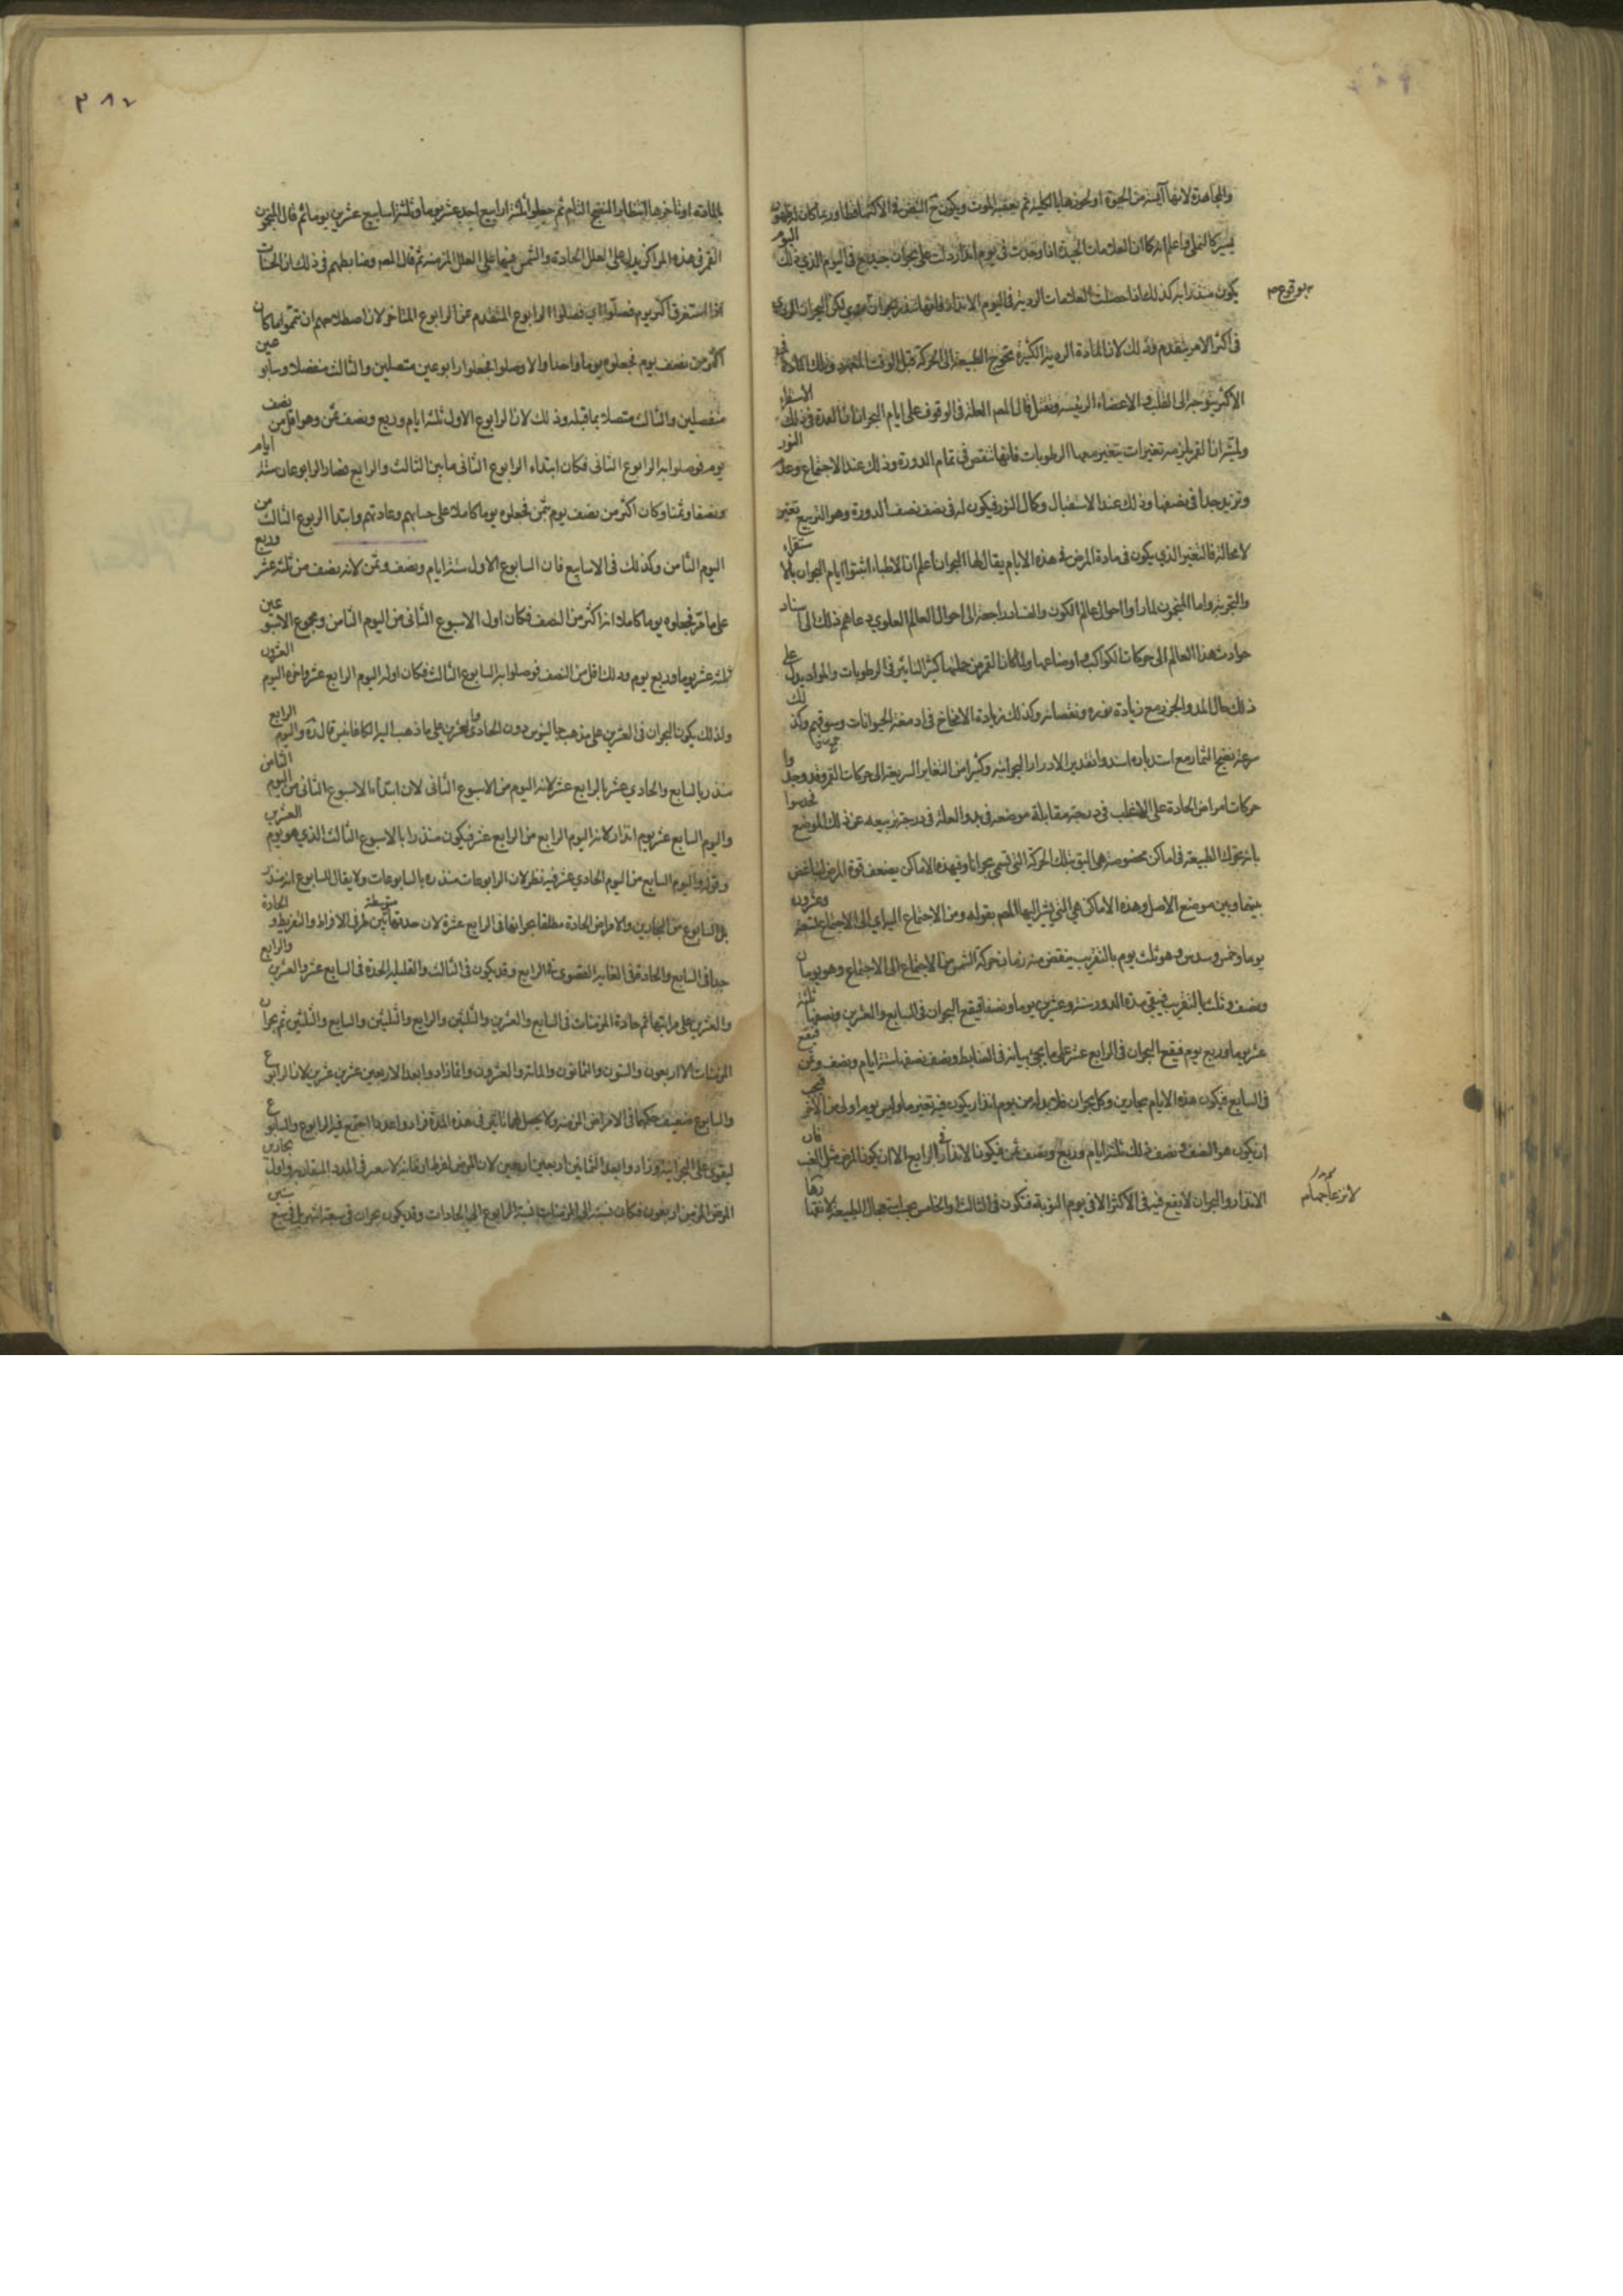 والمجاهدة لانها آيسة من الحيوة او لخورها بالكلية ثم يعقبه الموت ويكون ح النبض في الاكثر ساقطا وربما كان له ظهور
يسير كالنملي واعلم انه كما ان العلامات الجيدة اذا وجدت في يوم انذار دلت على بحران جيد يقع في اليوم الذي ذلك اليوم
يكون منذرا به كذلك اذا حصلت العلامات الردية في اليوم الانذار فانها تنذر ببحران ردي لكن البحران الردي
بوقوع
في اكثر الامر يتقدم وذلك لان المادة الردية الكثيرة تحوج الطبيعة الى الحركة قبل الوقت المعهود وذلك المادة
الاكثر يتوجه الى القلب والاعضاء الرئيسة وتقتل قال المص العلة في الوقوف على ايام البحران ان العمدة في ذلك الاستقراء
ولميته ان القمر يلزمه تغيرات يتغير معها الرطوبات فانها تنقص في تمام الدورة وذلك عند الاجتماع وعدم النور
وتزيد جدا في نصفها وذلك عند الاستقبال وكمال النور فيكون له في نصف نصف الدورة وهو التربيع تغير
لا محالة فالتغير الذي يكون في مادة المرض في هذه الايام يقال لها البحران اعلم ان الاطباء اثبتوا ايام البحران بالاستقراء
والتجربة واما المنجمون لما راوا احوال عالم الكون والفساد راجعة الى احوال العالم العلوي دعاهم ذلك الى اسناد
حوادث هذا العالم الى حركات الكواكب واوضاعها ولما كان القمر من جملتها كثير التاثير في الرطوبات والمواد يدل على
ذلك حال المد والجزر مع زيادة نوره ونقصانه وكذلك زيادة الانخاخ في ادمغة الحيوانات وسوقهم وكذلك
سرعة نضج الثمار مع استدباره اسندوا تقدير الادوار البحرانية وكثير من التغاير السريعة الى حركات القمر وقد وجدوا
حركات امراض الحادة على الاغلب في درجة مقابلة موضعه في بدو العلة في درجة تربيعه عن ذلك الموضع فحدسوا
بانه تحرك الطبيعة في اماكن مخصوصة هي اليق بتلك الحركة التي تسمى بحرانا وفي هذه الاماكن يضعف قوة المرض لتباغض
بينها وبين موضع الاصل وهذه الاماكن هي التي يشير اليها المص بقوله ومن الاجتماع الى الاجتماع تسعة وعشرون
يوما وخمس وسدس وهو ثلث يوم بالتقريب ينقص منه زمان حركة الشمس من الاجتماع الى الاجتماع وهو يومان
ونصف وثلث بالتقريب فيبقى مدة الدور ستة وعشرين يوما ونصفا فيقع البحران في السابع والعشرين ونصفها ثلثة
عشر يوما وربع يوم فيقع البحران في الرابع عشر على ما يجئ بيانه في الضابط ونصف نصفها ستة ايام ونصف وثمن فيقع
في السابع فيكون هذه الايام بحارين وكل بحران فلا بد له من يوم انذار يكون فيه تغير ما وليس يوم اولى من الآخر فيجب
ان يكون هو النصف ونصف ذلك ثلثة ايام وربع ونصف ثمن فيكون الانذار في الرابع الا ان يكون المرض مثل الغب فان
الانذار والبحران لا يقع فيه في الاكثر الا في يوم النوبة فتكون في الثالث والخامس بحسب استعجال الطبيعة لانتهازها
بالمادة او تاخرها انتظارا للنضج التام ثم جعلوا ثلثة ارابيع احد عشر يوما وثلثة اسابيع عشرين يوما ثم قال المنجمون
القمر في هذه المراكز يدل على العلل الحادة والشمس فيها على العلل المزمنة ثم قال المص وضابطهم في ذلك ان الحساب
اذا استغرق اكثر يوم فصلوا اي فصلوا الرابوع المتقدم عن الرابوع المتاخر لان اصطلاحهم ان تمموا ما كان
اكثر من نصف يوم فجعلوه يوما واحدا والا وصلوا فجعلوا رابوعين متصلين والثالث منفصلا وسابوعين
منفصلين والثالث متصلا بما قبله وذلك لان الرابوع الاول ثلثة ايام وربع ونصف ثمن وهو اقل من نصف
يوم فوصلوا به الرابوع الثاني فكان ابتداء الرابوع الثاني ما بين الثالث والرابع فصار الرابوعان ستة ايام
ونصفا وثمنا وكان اكثر من نصف يوم بثمن فجعلوه يوما كاملا على حسابهم وعادتهم وابتدا الربوع الثالث من
اليوم الثامن وكذلك في الاسابيع فان السابوع الاول ستة ايام ونصف وثمن لانه نصف من ثلثة عشر وربع
على ما مر فجعلوه يوما كاملا اذ اكثر من النصف فكان اول الاسبوع الثاني من اليوم الثامن ومجموع الاسبوعين
ثلثة عشر يوما وربع يوم وذلك اقل من النصف فوصلوا به السابوع الثالث فكان اوله اليوم الرابع عشر واخره اليوم العشرون
ولذلك يكون البحران في العشرين على مذهب جالينوس دون الحادي والعشرين على ما ذهب اليه اركاغانيس قال ره واليوم الرابع
منذر بالسابع والحادي عشر بالرابع عشر لانه اليوم من الاسبوع الثاني لان ابتداء الاسبوع الثاني من اليوم الثامن
واليوم السابع عشر يوم انذار لانه اليوم الرابع من الرابع عشر فيكون منذرا بالاسبوع الثالث الذي هو يوم العشرين
وقوله واليوم السابع من اليوم الحادي عشر فيه نظر لان الرابوعات منذرة بالسابوعات ولا يقال للسابوع انه منذر
بل السابوع من البحارين والامراض الحادة مطلقا بحرانها في الرابع عشرة لان حدتها متوسطة بين طرفي الافراط والتفريط والحادة
جدا في السابع والحادة في الغاية القصوى في الرابع وقد يكون في الثالث والقليلة الحدة في السابع عشر والعشرين والرابع
والعشرين على مراتبها ثم حادة المزمنات في السابع والعشرين والثلثين والرابع والثلثين والسابع والثلثين ثم بحران
المزمنات الاربعون والستون والثمانون والمائة والعشرون وانما زادوا بعد الاربعين عشرين عشرين لان الرابوع
والسابوع ضعيف حكمها في الامراض المزمنة ولا يحصل لهما تاثير في هذه المدة فزادوا عددا اجتمع فيه الرابوع والسابوع
ليقوى على البحرانية وزادوا بعد الثمانين اربعين اربعين لان المرض لفرط ازمانه لا يتغير في المدد المتقاربة واول بحارين
المرض المزمن اربعون فكان نسبته الى المزمنات نسبة الرابوع الى الحادات وقد يكون بحران في سبعة اشهر بل في سبع سنين